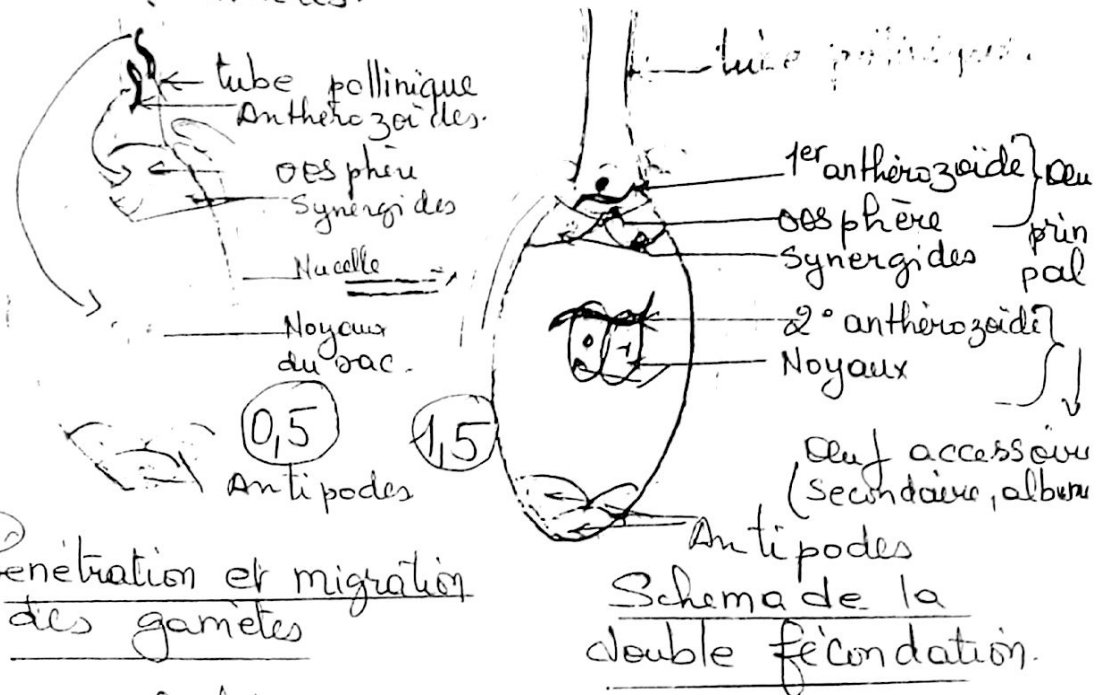 tube pollinique
Anthérozoïdes.
oosphère
Synergides
Nucelle
Noyaux
du sac.
0,5
Antipodes
enétration et migration
des gamètes
tube pollinique.
1er anthérozoïde
oosphère
Synergides
prin
pal
2° anthérozoïde
Noyaux
1,5
Oeuf accessoire
(Secondaire, album
Antipodes
Schema de la
double fécondation.